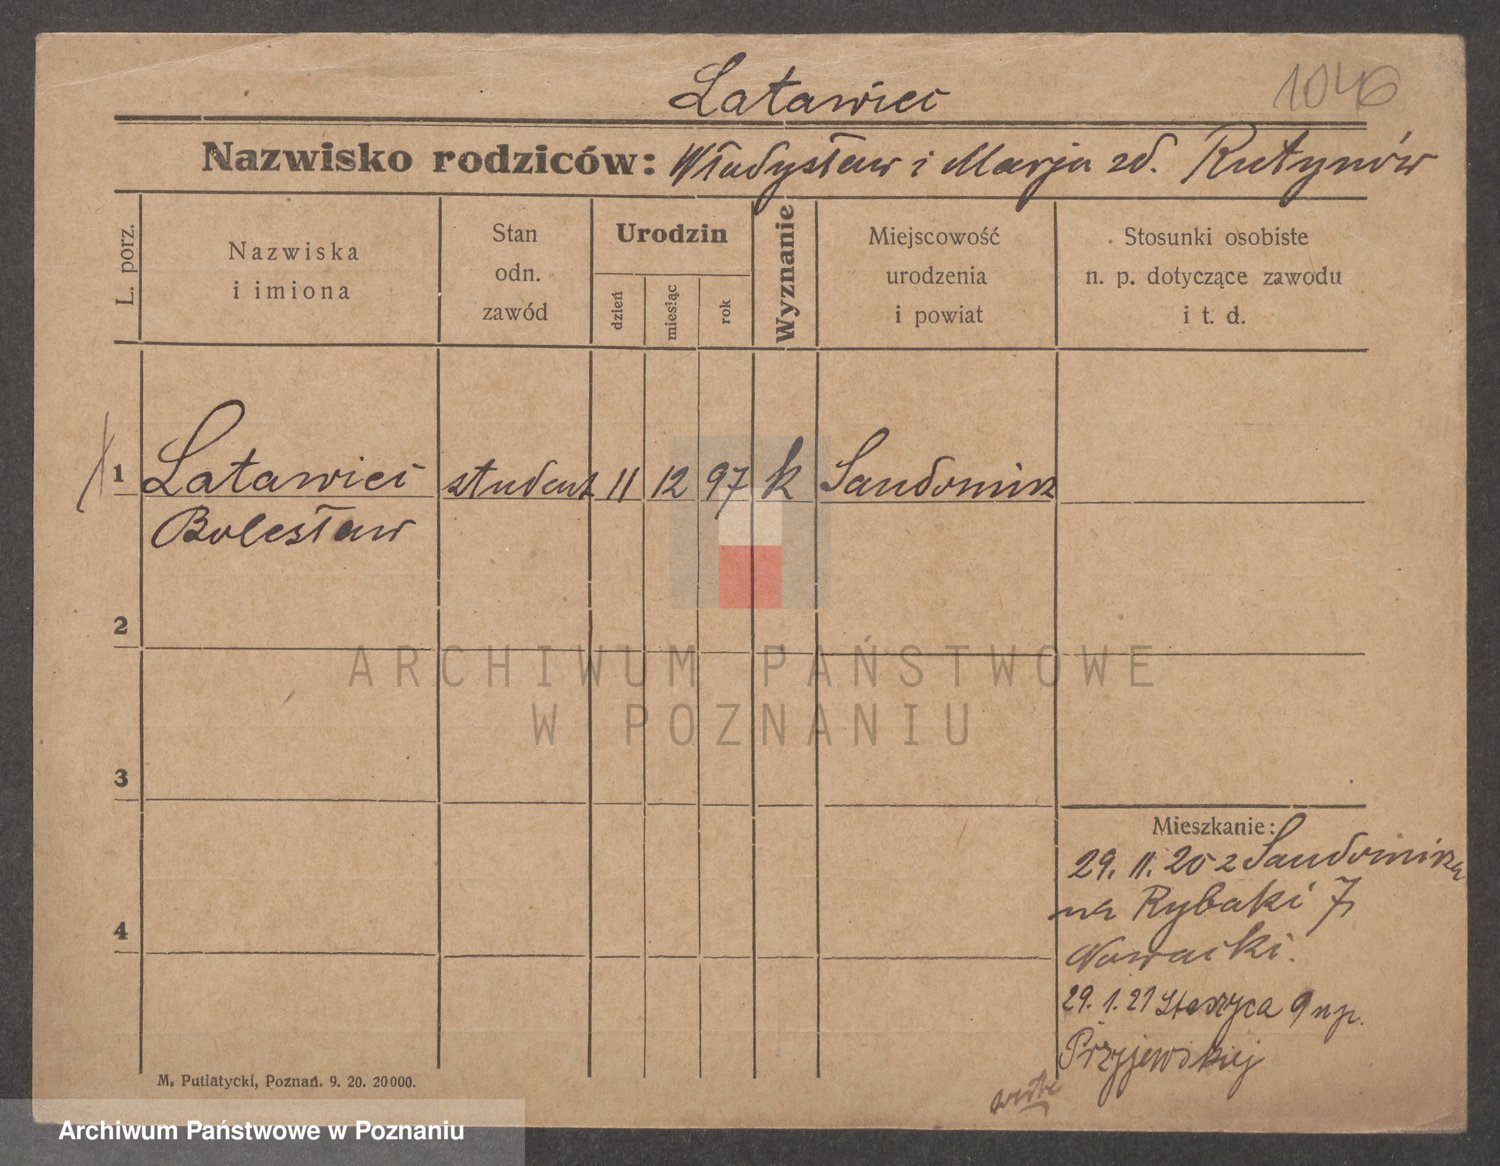 Latawiec
1046
Nazwisko rodziców: Władysław i Marja zd. Rutynów
L. porz.
Nazwiska
i imiona
Stan
odn.
zawód
Urodzin
dzień
miesiąc
rok
Wyznanie
Miejscowość
urodzenia
i powiat
Stosunki osobiste
n. p. dotyczące zawodu
i t. d.
1 Latawiec student 11 12 97 k Sandomirz
Bolesław
2
ARCHIWUM PAŃSTWOWE
W POZNANIU
3
Mieszkanie:
29. 11. 20 z Sandomirza
na Rybaki 7
4
Nowacki.
29. 1. 21 Staszyca 9 u p.
Przyjewskiej
M. Putiatycki, Poznań. 9. 20. 20000.
Archiwum Państwowe w Poznaniu